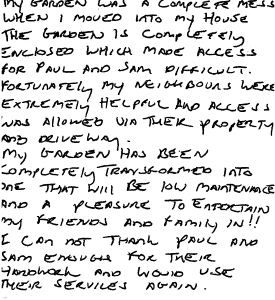 MY GARDEN WAS A COMPLETE MESS
WHEN I MOVED INTO MY HOUSE
THE GARDEN IS COMPLETELY
ENCLOSED WHICH MADE ACCESS
FOR PAUL AND SAM DIFFICULT.
FORTUNATELY MY NEIGHBOURS WERE
EXTREMELY HELPFUL AND ACCESS
WAS ALLOWED VIA THEIR PROPERTY
AND DRIVEWAY.
MY GARDEN HAS BEEN
COMPLETELY TRANSFORMED INTO
ONE THAT WILL BE LOW MAINTENANCE
AND A PLEASURE TO ENTERTAIN
MY FRIENDS AND FAMILY IN!!
I CAN NOT THANK PAUL AND
SAM ENOUGH FOR THEIR
HARDWORK AND WOULD USE
THEIR SERVICES AGAIN.